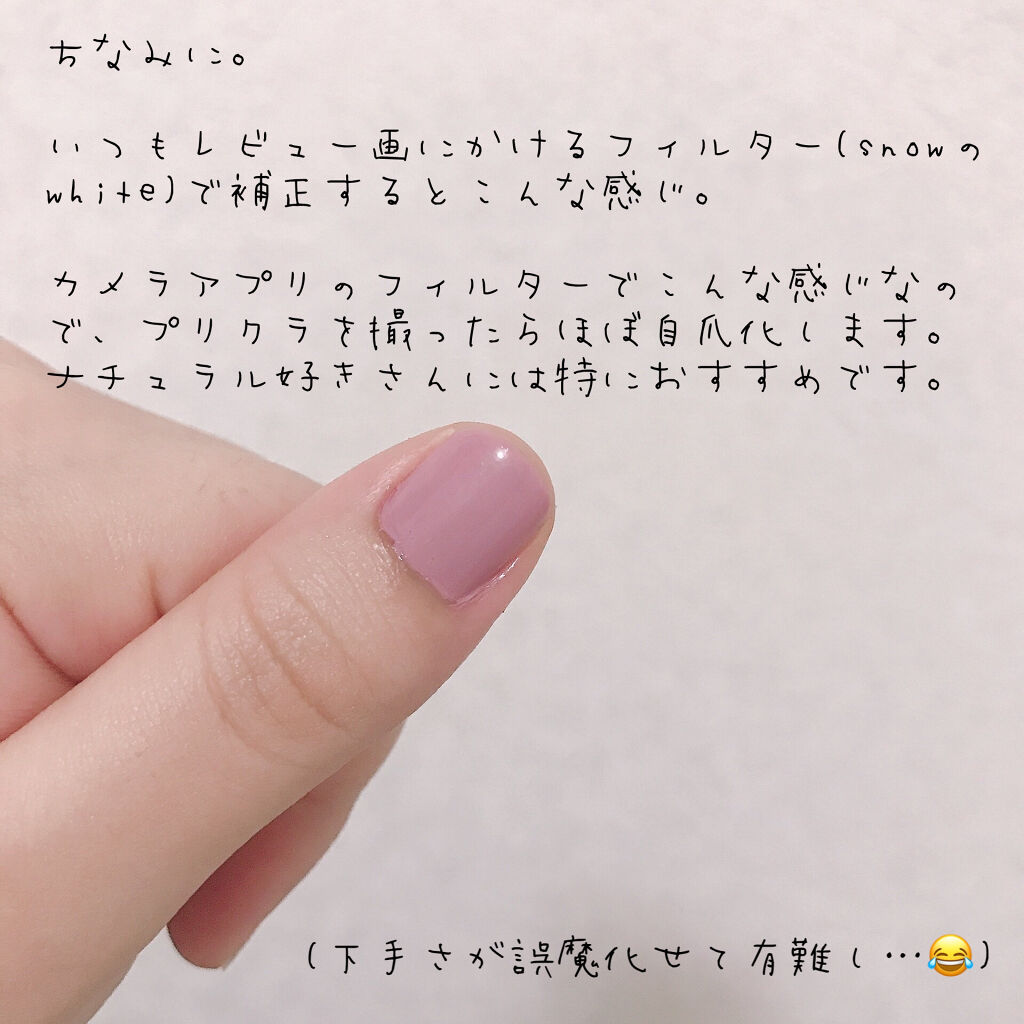 ちなみに。
いつもレビュー画にかけるフィルター(snowの
white)で補正するとこんな感じ。
カメラアプリのフィルターでこんな感じなの
で、プリクラを撮ったらほぼ自爪化します。
ナチュラル好きさんには特におすすめです。
(下手さが誤魔化せて有難し…😂)